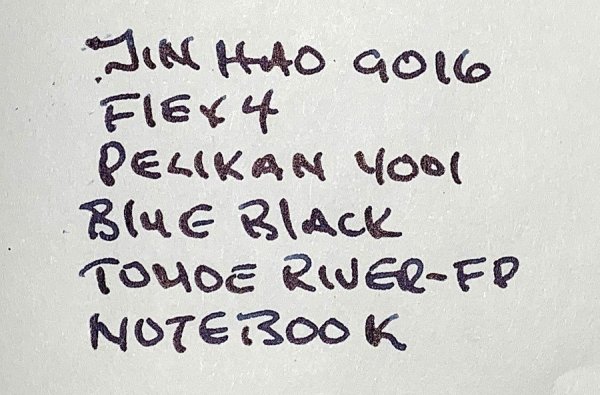 JIN HAO 9016
FlEX 4
PELIKAN 4001
BlUE BlACK
TOMOE RIVER-FP
NOTEBOOK